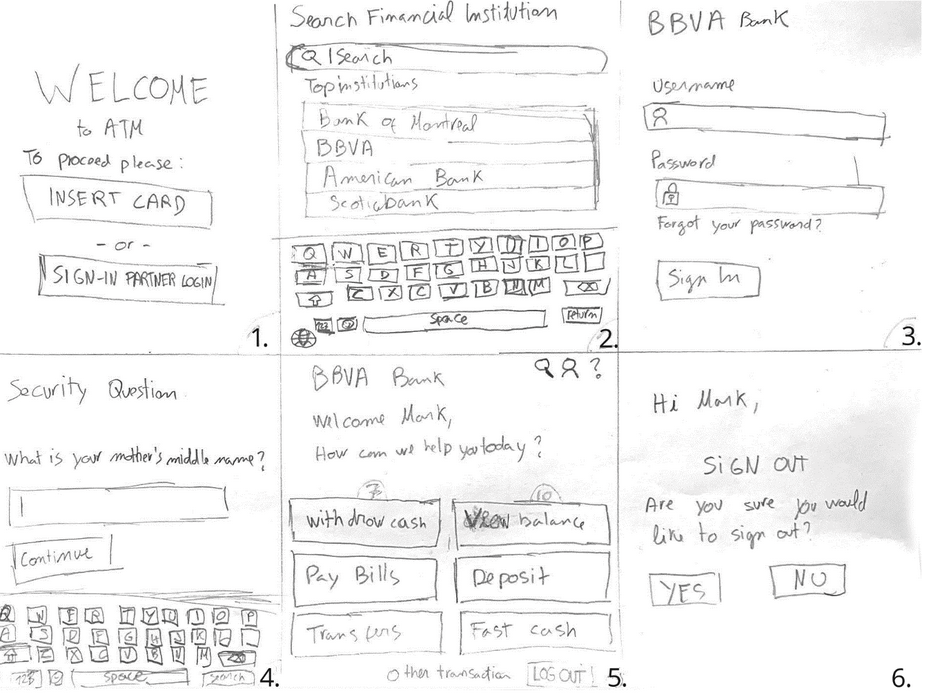 WELCOME
to ATM
To proceed please:
INSERT CARD
- or -
SIGN-IN PARTNER LOGIN
1.
Search Financial Institution
Search
Top institutions
Bank of Montreal
BBVA
American Bank
Scotiabank
Q W E R T Y U I O P
A S D F G H J K L
Z X C V B N M
123
space
return
2.
BBVA Bank
Username
Password
Forgot your password?
Sign In
3.
Security Question
What is your mother's middle name?
Continue
Q W E R T Y U I O P
A S D F G H J K L
Z X C V B N M
123
space
search
4.
BBVA Bank
?
Welcome Mark,
How can we help you today?
7 10
Withdraw cash
View balance
Pay Bills
Deposit
Transfers
Fast cash
Other transaction
LOG OUT
5.
Hi Mark,
SIGN OUT
Are you sure you would
like to sign out?
YES
NO
6.